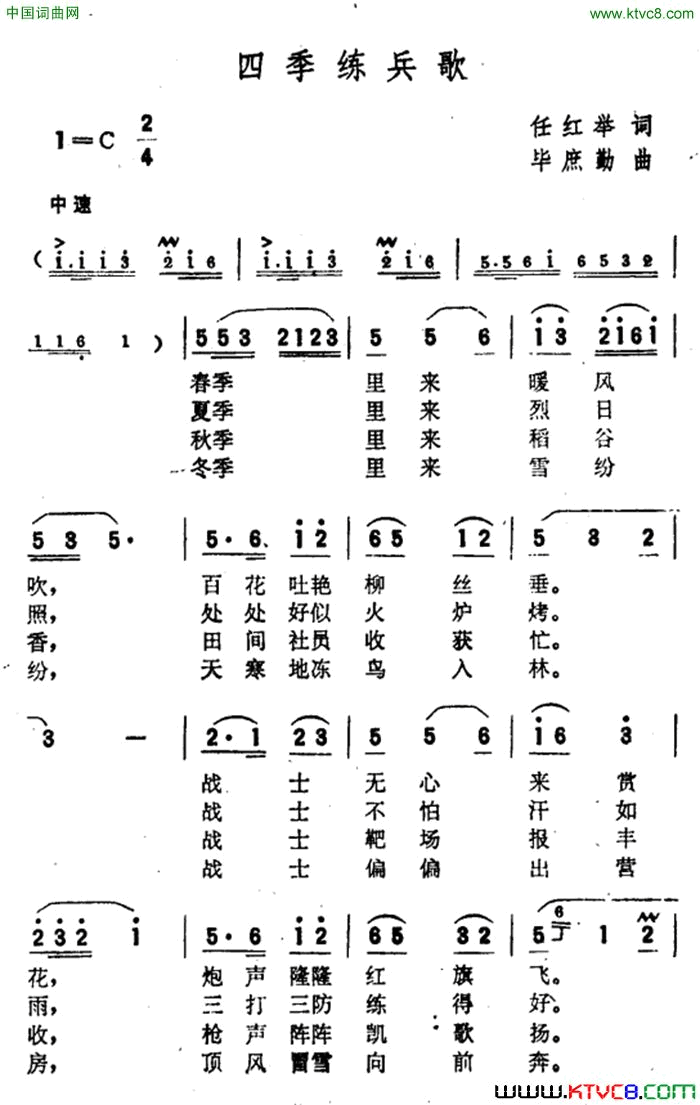 中国词曲网
www.ktvc8.com
四季练兵歌
1=C 2/4
任红举 词
毕庶勤 曲
中速
( i·i i 3 2 i 6 | i·i i 3 2 i 6 | 5·5 6 i 6 5 3 2 |
1 1 6 1 ) | 5 5 3 2 1 2 3 | 5 5 6 | i 3 2 i 6 i |
春季 里来 暖风
夏季 里来 烈日
秋季 里来 稻谷
冬季 里来 雪纷
5 3 5· | 5· 6 i 2 | 6 5 1 2 | 5 3 2 |
吹, 百花吐艳柳丝垂。
照, 处处好似火炉烤。
香, 田间社员收获忙。
纷, 天寒地冻鸟入林。
3 — | 2· 1 2 3 | 5 5 6 | i 6 3 |
战士无心来赏
战士不怕汗如
战士靶场报丰
战士偏偏出营
2 3 2 i | 5· 6 i 2 | 6 5 3 2 | 6 5 1 2 |
花, 炮声隆隆红旗飞。
雨, 三打三防练得好。
收, 枪声阵阵凯歌扬。
房, 顶风冒雪向前奔。
www.KTVC8.com